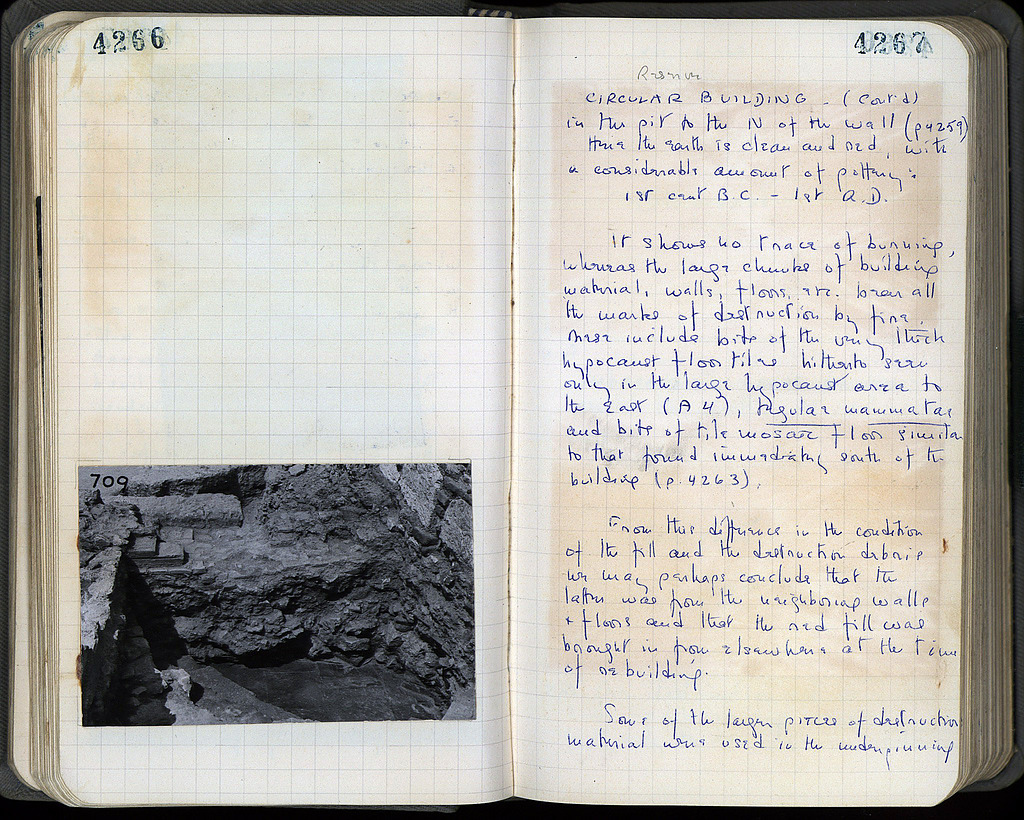 4266
709
4267
Reserve
CIRCULAR BUILDING - (cont'd)
in the pit to the N of the wall (p 4259)
Here the earth is clean and red, with
a considerable amount of pottery:
1st cent B.C. - 1st A.D.
It shows no trace of burning,
whereas the large chunks of building
material, walls, floors, etc. bear all
the marks of destruction by fire.
These include bits of the very thick
hypocaust floor tiles hitherto seen
only in the large hypocaust area to
the East (A 4), tegulae mammatae
and bits of tile mosaic floor similar
to that found immediately south of the
building (p. 4263).
From this difference in the condition
of the fill and the destruction debris
we may perhaps conclude that the
latter was from the neighboring walls
+ floors and that the red fill was
brought in from elsewhere at the time
of rebuilding.
Some of the larger pieces of destruction
material were used in the underpinning